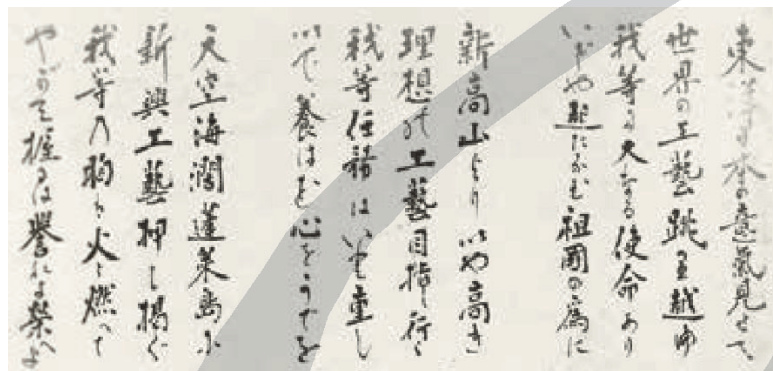 東洋日本の意氣見せて
世界の工藝跳び越ゆ
我等に大なる使命あり
いざや起たなむ祖國の爲に
新高山よりいや高き
理想の工藝目指し行く
我等任務はいや重し
いで養はむ心をうでを
天空海濶蓬萊島に
新興工藝押し揭ぐ
我等の胸は火と燃へて
やがて握るは譽れよ榮へよ